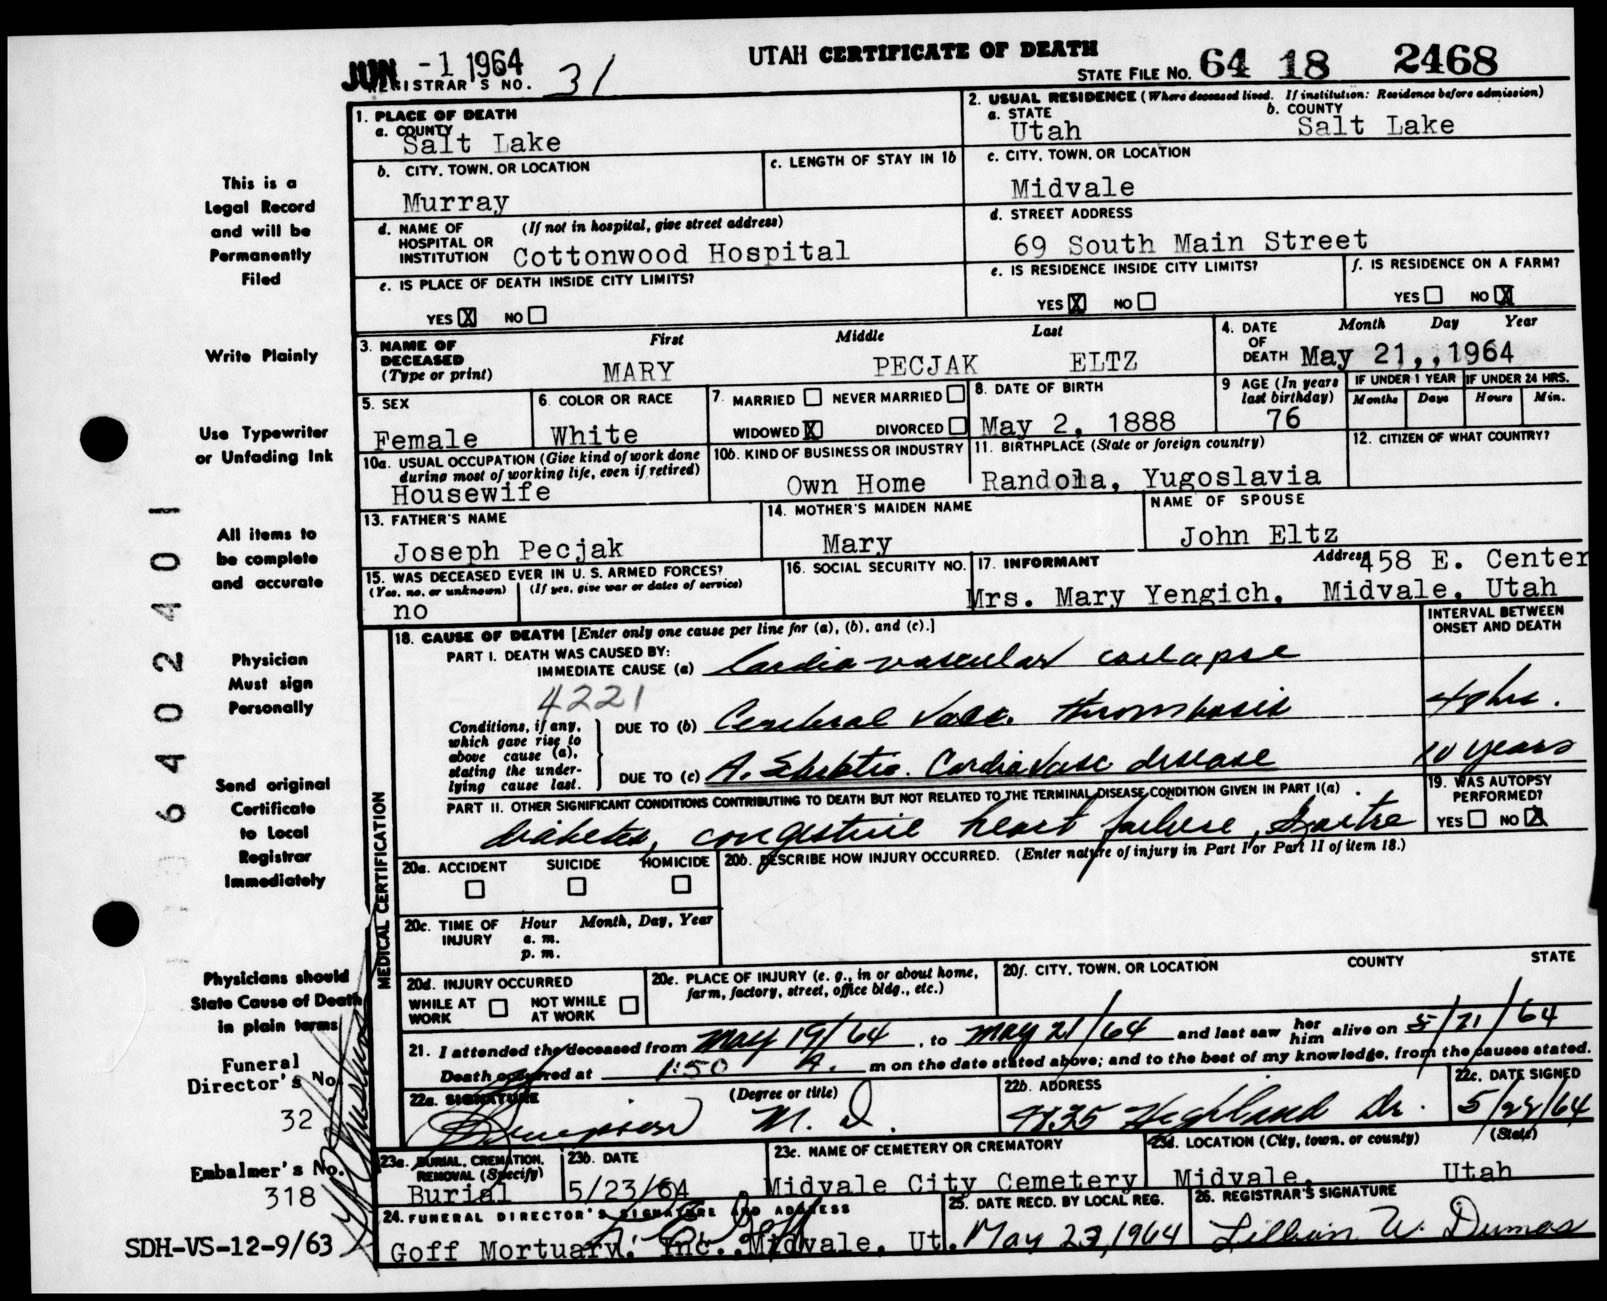 JUN -1 1964
UTAH CERTIFICATE OF DEATH
REGISTRAR'S NO. 31
STATE FILE NO. 64 18 2468
1. PLACE OF DEATH
a. COUNTY
Salt Lake
2. USUAL RESIDENCE (Where deceased lived. If institution: Residence before admission)
a. STATE
Utah
b. COUNTY
Salt Lake
b. CITY, TOWN, OR LOCATION
Murray
c. LENGTH OF STAY IN 1b
c. CITY, TOWN, OR LOCATION
Midvale
d. NAME OF HOSPITAL OR INSTITUTION (If not in hospital, give street address)
Cottonwood Hospital
d. STREET ADDRESS
69 South Main Street
e. IS PLACE OF DEATH INSIDE CITY LIMITS?
YES X NO
e. IS RESIDENCE INSIDE CITY LIMITS?
YES X NO
f. IS RESIDENCE ON A FARM?
YES NO X
3. NAME OF DECEASED (Type or print)
First Middle Last
MARY PECJAK ELTZ
4. DATE OF DEATH
Month Day Year
May 21,,1964
5. SEX
Female
6. COLOR OR RACE
White
7. MARRIED NEVER MARRIED
WIDOWED X DIVORCED
8. DATE OF BIRTH
May 2, 1888
9 AGE (In years last birthday)
76
IF UNDER 1 YEAR
Months Days
IF UNDER 24 HRS.
Hours Min.
10a. USUAL OCCUPATION (Give kind of work done during most of working life, even if retired)
Housewife
10b. KIND OF BUSINESS OR INDUSTRY
Own Home
11. BIRTHPLACE (State or foreign country)
Randola, Yugoslavia
12. CITIZEN OF WHAT COUNTRY?
13. FATHER'S NAME
Joseph Pecjak
14. MOTHER'S MAIDEN NAME
Mary
NAME OF SPOUSE
John Eltz
15. WAS DECEASED EVER IN U. S. ARMED FORCES?
(Yes, no, or unknown) (If yes, give war or dates of service)
no
16. SOCIAL SECURITY NO.
17. INFORMANT Address
458 E. Center
Mrs. Mary Yengich, Midvale, Utah
MEDICAL CERTIFICATION
18. CAUSE OF DEATH [Enter only one cause per line for (a), (b), and (c).]
INTERVAL BETWEEN ONSET AND DEATH
PART I. DEATH WAS CAUSED BY:
IMMEDIATE CAUSE (a) Cardio vascular collapse
4221
Conditions, if any, which gave rise to above cause (a), stating the underlying cause last.
DUE TO (b) Cerebral Vasc. thrombosis 48 hrs.
DUE TO (c) A. Sclerotic Cardiovasc disease 10 years
PART II. OTHER SIGNIFICANT CONDITIONS CONTRIBUTING TO DEATH BUT NOT RELATED TO THE TERMINAL DISEASE CONDITION GIVEN IN PART I(a)
diabetes, congestive heart failure,
19. WAS AUTOPSY PERFORMED?
YES NO X
20a. ACCIDENT SUICIDE HOMICIDE
20b. DESCRIBE HOW INJURY OCCURRED. (Enter nature of injury in Part I or Part II of item 18.)
20c. TIME OF INJURY Hour Month, Day, Year
a. m.
p. m.
20d. INJURY OCCURRED
WHILE AT WORK NOT WHILE AT WORK
20e. PLACE OF INJURY (e. g., in or about home, farm, factory, street, office bldg., etc.)
20f. CITY, TOWN, OR LOCATION COUNTY STATE
21. I attended the deceased from May 19/64, to May 21/64 and last saw her him alive on 5/21/64
Death occurred at 1:50 A. m on the date stated above; and to the best of my knowledge, from the causes stated.
22a. SIGNATURE (Degree or title)
M. D.
22b. ADDRESS
Highland Dr.
22c. DATE SIGNED
5/22/64
23a. BURIAL, CREMATION, REMOVAL (Specify)
Burial
23b. DATE
5/23/64
23c. NAME OF CEMETERY OR CREMATORY
Midvale City Cemetery
23d. LOCATION (City, town, or county) (State)
Midvale, Utah
24. FUNERAL DIRECTOR'S SIGNATURE AND ADDRESS
Goff Mortuary, Inc. Midvale, Ut.
25. DATE RECD. BY LOCAL REG.
May 23, 1964
26. REGISTRAR'S SIGNATURE
Lillian W. Dumas
This is a
Legal Record
and will be
Permanently
Filed
Write Plainly
Use Typewriter
or Unfading Ink
All items to
be complete
and accurate
Physician
Must sign
Personally
Send original
Certificate
to Local
Registrar
Immediately
Physicians should
State Cause of Death
in plain terms
Funeral
Director's No.
32
Embalmer's No.
318
SDH-VS-12-9/63
6402401